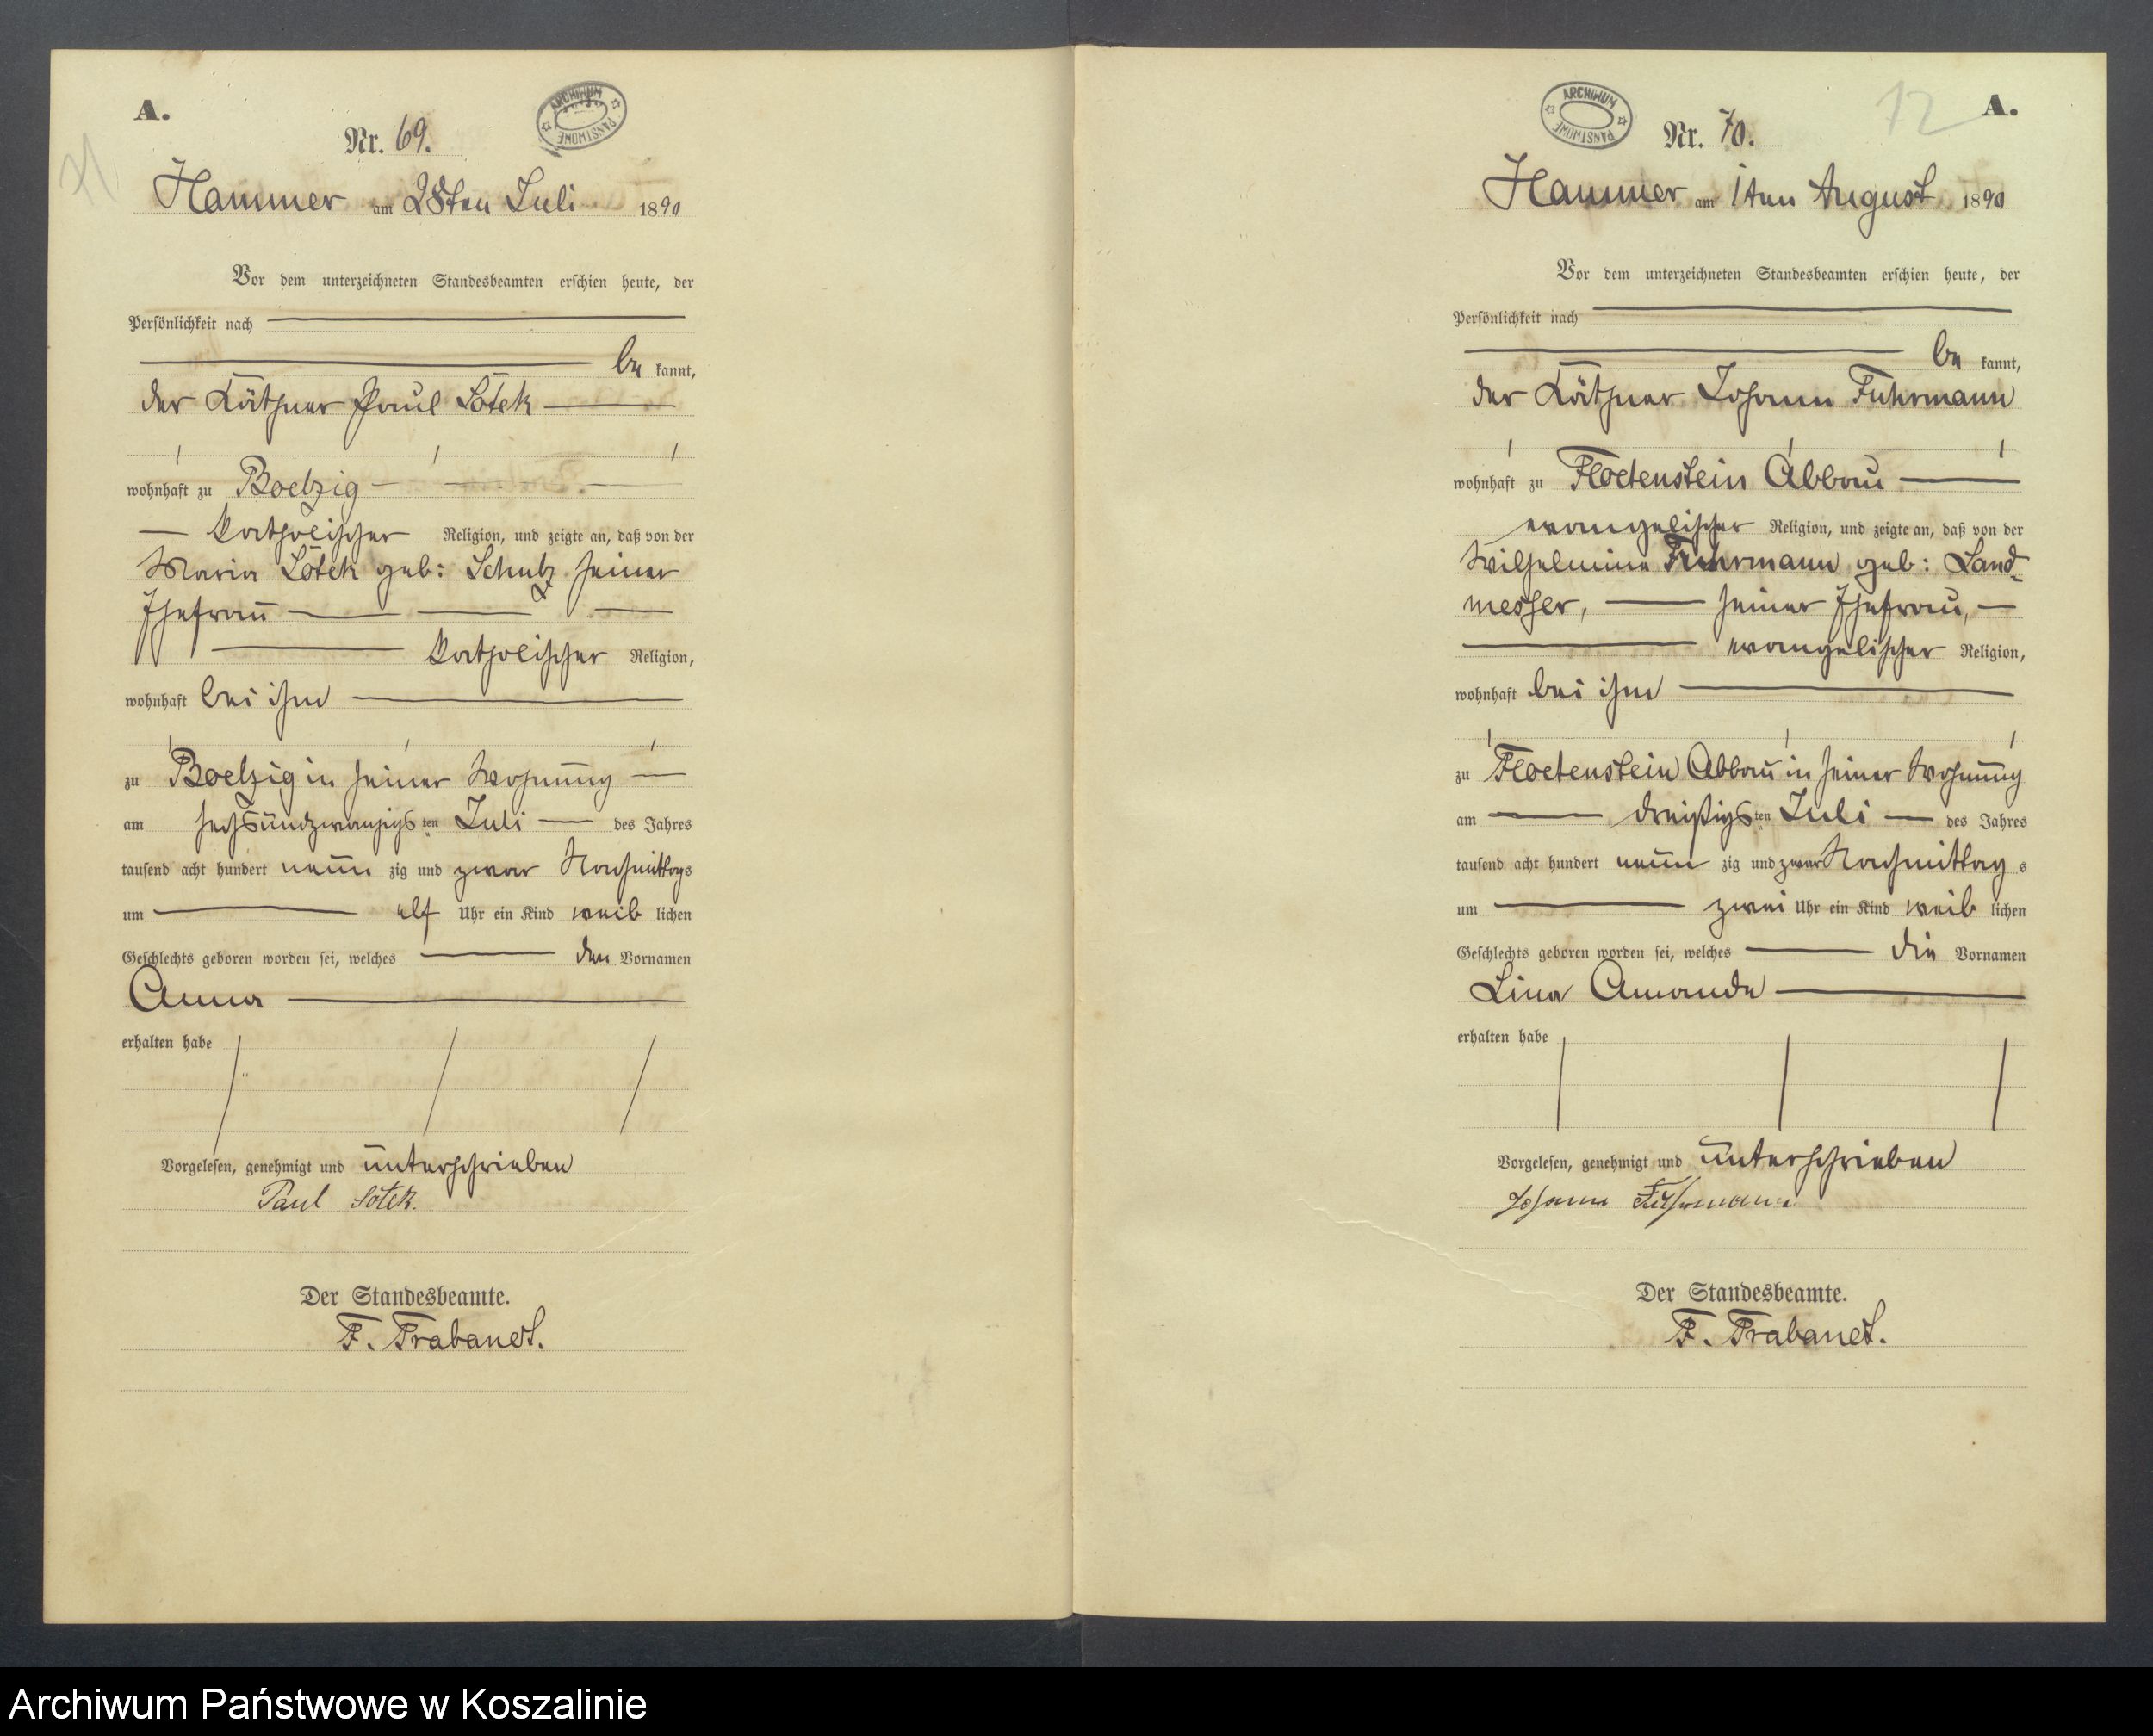 A.
ARCHIWUM PAŃSTWOWE
Nr. 69.
Hammer am 28ten Juli 1890
Vor dem unterzeichneten Standesbeamten erschien heute, der
Persönlichkeit nach
be kannt,
der Käthner Paul Sotek
wohnhaft zu Boelzig
katholischer Religion, und zeigte an, daß von der
Maria Sotek geb: Schulz seiner
Ehefrau
katholischer Religion,
wohnhaft bei ihm
zu Boelzig in seiner Wohnung
am sechsundzwanzigs ten Juli des Jahres
tausend acht hundert neun zig und zwar Nachmittags
um elf Uhr ein Kind weib lichen
Geschlechts geboren worden sei, welches den Vornamen
Anna
erhalten habe
Vorgelesen, genehmigt und unterschrieben
Paul Sotek.
Der Standesbeamte.
F. Trabanet.
A.
72
ARCHIWUM PAŃSTWOWE
Nr. 70.
Hammer am 1ten August 1890
Vor dem unterzeichneten Standesbeamten erschien heute, der
Persönlichkeit nach
be kannt,
der Käthner Johann Fuhrmann
wohnhaft zu Floetenstein Abbau
evangelischer Religion, und zeigte an, daß von der
Wilhelmine Fuhrmann geb: Land-
messer, seiner Ehefrau,
evangelischer Religion,
wohnhaft bei ihm
zu Floetenstein Abbau in seiner Wohnung
am dreißigs ten Juli des Jahres
tausend acht hundert neun zig und zwar Nachmittag s
um zwei Uhr ein Kind weib lichen
Geschlechts geboren worden sei, welches die Vornamen
Lina Amande
erhalten habe
Vorgelesen, genehmigt und unterschrieben
Johann Fuhrmann
Der Standesbeamte.
F. Trabanet.
Archiwum Państwowe w Koszalinie